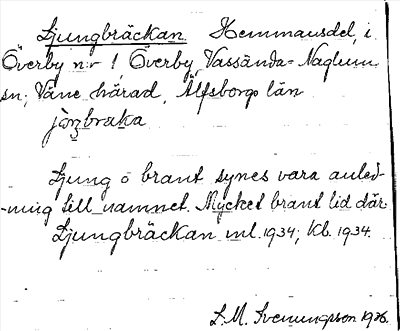 Ljungbräckan Hemmansdel, i
Överby n:r 1 Överby, Vassända-Naglum
sn; Väne härad, Älfsborgs län
jòŋbraka
Ljung o brant synes vara anled-
-ning till namnet. Mycket brant lid där
Ljungbräckan ml. 1934; Kb. 1934.
L. M. Svenungsson 1936.